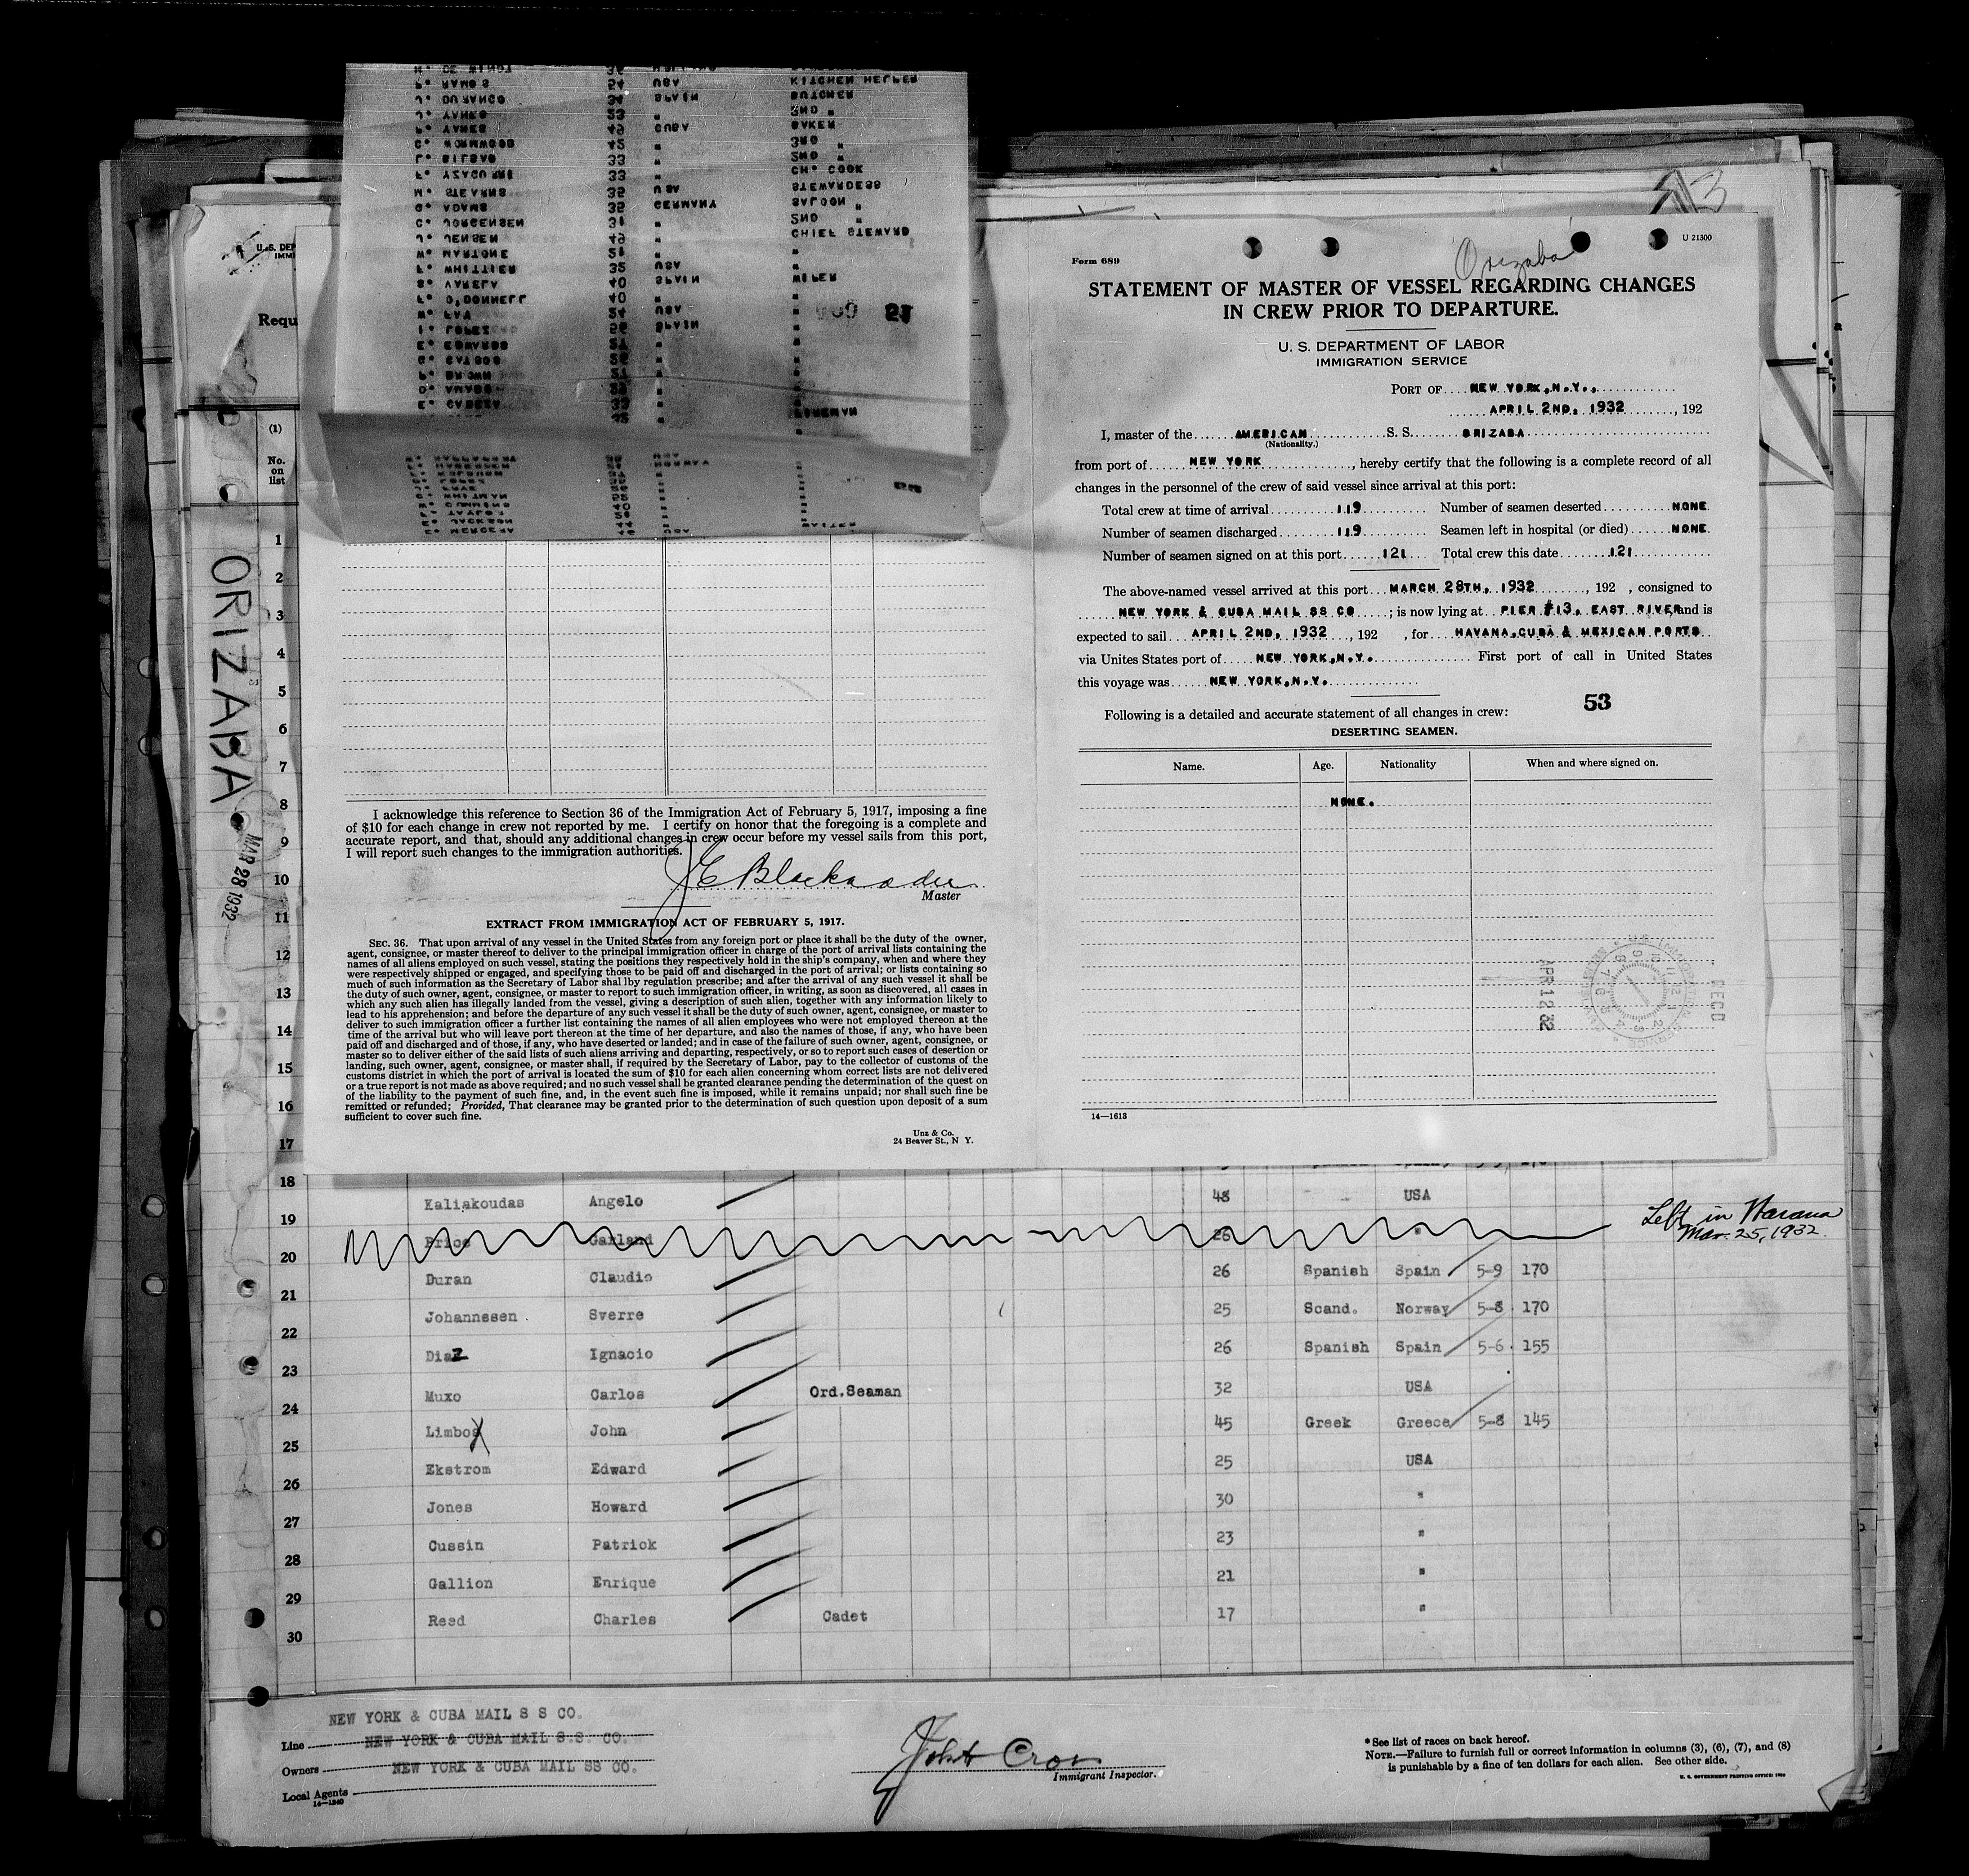 H. DE WINDT 36
F. RAMOS 54 USA KITCHEN HELPER
J. DURANGO 34 SPAIN BUTCHER
J. YANES 53 " 3ND "
F. YANES 49 CUBA BAKER
C. WORMWOOD 42 " 3RD "
L. BILBAO 33 " 2ND "
F. YZAGUIRRE 33 " CH. COOK
M. STEARNS 32 USA STEWARDESS
G. ADAMS 32 GERMANY SALOON "
C. JORGENSEN 31 " 2ND "
J. JENSEN 49 " CHIEF STEWARD
W. MARTONE 21 "
F. WHITTIER 35 USA
S. VARELA 40 SPAIN WIPER
F. O'DONNELL 40 "
W. FAY 24 USA "
I. LOPEZ 56 SPAIN "
E. EDWARDS
C. CATSOS
F. BROWN
O. AMADO
E. CABEZA 33 " FIREMAN
NORWAY
C. WHITMAN
W. CUMMINS
F. TAYLOR
E. JACKSON
E. MERCERA
U. S. DEP
IMMI
Requ
(1)
No.
on
list
ORIZABA
MAR 28 1932
1
2
3
4
5
6
7
8
9
10
11
12
13
14
15
16
17
I acknowledge this reference to Section 36 of the Immigration Act of February 5, 1917, imposing a fine
of $10 for each change in crew not reported by me. I certify on honor that the foregoing is a complete and
accurate report, and that, should any additional changes in crew occur before my vessel sails from this port,
I will report such changes to the immigration authorities.
Master
EXTRACT FROM IMMIGRATION ACT OF FEBRUARY 5, 1917.
SEC. 36. That upon arrival of any vessel in the United States from any foreign port or place it shall be the duty of the owner,
agent, consignee, or master thereof to deliver to the principal immigration officer in charge of the port of arrival lists containing the
names of all aliens employed on such vessel, stating the positions they respectively hold in the ship's company, when and where they
were respectively shipped or engaged, and specifying those to be paid off and discharged in the port of arrival; or lists containing so
much of such information as the Secretary of Labor shal lby regulation prescribe; and after the arrival of any such vessel it shall be
the duty of such owner, agent, consignee, or master to report to such immigration officer, in writing, as soon as discovered, all cases in
which any such alien has illegally landed from the vessel, giving a description of such alien, together with any information likely to
lead to his apprehension; and before the departure of any such vessel it shall be the duty of such owner, agent, consignee, or master to
deliver to such immigration officer a further list containing the names of all alien employees who were not employed thereon at the
time of the arrival but who will leave port thereon at the time of her departure, and also the names of those, if any, who have been
paid off and discharged and of those, if any, who have deserted or landed; and in case of the failure of such owner, agent, consignee, or
master so to deliver either of the said lists of such aliens arriving and departing, respectively, or so to report such cases of desertion or
landing, such owner, agent, consignee, or master shall, if required by the Secretary of Labor, pay to the collector of customs of the
customs district in which the port of arrival is located the sum of $10 for each alien concerning whom correct lists are not delivered
or a true report is not made as above required; and no such vessel shall be granted clearance pending the determination of the quest on
of the liability to the payment of such fine, and, in the event such fine is imposed, while it remains unpaid; nor shall such fine be
remitted or refunded; Provided, That clearance may be granted prior to the determination of such question upon deposit of a sum
sufficient to cover such fine.
Unz & Co.
24 Beaver St., N Y.
Form 689
Orizaba
U 21300
STATEMENT OF MASTER OF VESSEL REGARDING CHANGES
IN CREW PRIOR TO DEPARTURE.
U. S. DEPARTMENT OF LABOR
IMMIGRATION SERVICE
PORT OF NEW YORK, N.Y.,
APRIL 2ND, 1932, 192
I, master of the AMERICAN S. S. ORIZABA
(Nationality.)
from port of NEW YORK, hereby certify that the following is a complete record of all
changes in the personnel of the crew of said vessel since arrival at this port:
Total crew at time of arrival 119 Number of seamen deserted NONE
Number of seamen discharged 119 Seamen left in hospital (or died) NONE
Number of seamen signed on at this port 121 Total crew this date 121
The above-named vessel arrived at this port MARCH 28TH, 1932, 192 , consigned to
NEW YORK & CUBA MAIL SS CO ; is now lying at PIER #13, EAST RIVER and is
expected to sail APRIL 2ND, 1932, 192 , for HAVANA, CUBA & MEXICAN PORTS
via Unites States port of NEW YORK, N.Y. First port of call in United States
this voyage was NEW YORK, N.Y.
53
Following is a detailed and accurate statement of all changes in crew:
DESERTING SEAMEN.
Name. Age. Nationality When and where signed on.
NONE.
APR 12 32
RECD
14—1613
18 Kaliakoudas Angelo 48 USA
19 Price Garland 26 " Left in Havana
Mar. 25, 1932.
20 Duran Claudio 26 Spanish Spain 5-9 170
21 Johannesen Sverre 25 Scand. Norway 5-8 170
22 Diaz Ignacio 26 Spanish Spain 5-6 155
23 Muxo Carlos Ord.Seaman 32 USA
24 Limbos John 45 Greek Greece 5-8 145
25 Ekstrom Edward 25 USA
26 Jones Howard 30 "
27 Cussin Patrick 23 "
28 Gallion Enrique 21 "
29 Reed Charles Cadet 17 "
30
NEW YORK & CUBA MAIL S S CO.
Line NEW YORK & CUBA MAIL S.S. CO.
Owners NEW YORK & CUBA MAIL SS CO.
Local Agents
14—1240
Immigrant Inspector.
* See list of races on back hereof.
NOTE.—Failure to furnish full or correct information in columns (3), (6), (7), and (8)
is punishable by a fine of ten dollars for each alien. See other side.
U. S. GOVERNMENT PRINTING OFFICE: 1930